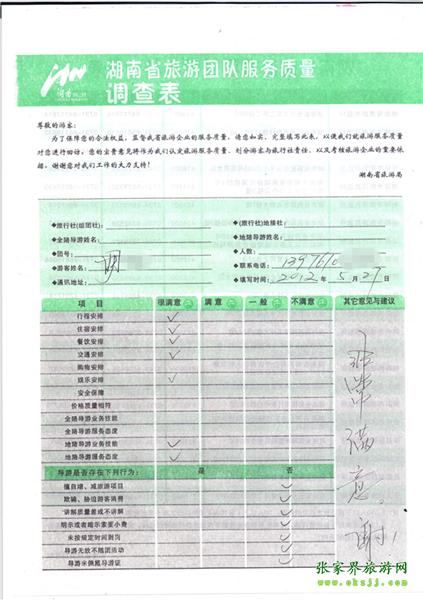 湖南省旅游团队服务质量
调查表
尊敬的游客:
为了保障您的合法权益,监督我省旅游企业的服务质量,请您如实、完整填写此表,以便我们就旅游服务质量
对您进行回访。您的宝贵意见将作为我们认定旅游服务质量、划分游客与旅行社责任、以及考核旅游企业的重要依
据。谢谢您对我们工作的大力支持!
湖南省旅游局
◆旅行社(组团社): ◆(旅行社)地接社:
◆全陪导游姓名: ◆地陪导游姓名:
◆团号: ◆人数:
◆游客姓名: 胡 ◆联系电话: 139761
◆通讯地址: ◆填写时间: 2012 年 5 月 29 日
项 目 很满意 满意 一般 不满意 其它意见与建议
行程安排 ✓
住宿安排 ✓
餐饮安排 ✓
交通安排 ✓
购物安排
娱乐安排 ✓
安全保障
价格质量相符
全陪导游业务技能
全陪导游服务态度
地陪导游业务技能 ✓
地陪导游服务态度 ✓
非常满意。谢!
导游是否存在下列行为: 是 否
擅自增、减旅游项目 ✓
欺骗、胁迫游客消费 ✓
讲解质量差或不讲解 ✓
明示或者暗示索要小费 ✓
未按规定时间到岗 ✓
导游无故不随团活动 ✓
导游未佩戴导游证 ✓
张家界旅游网
www.okzjj.com